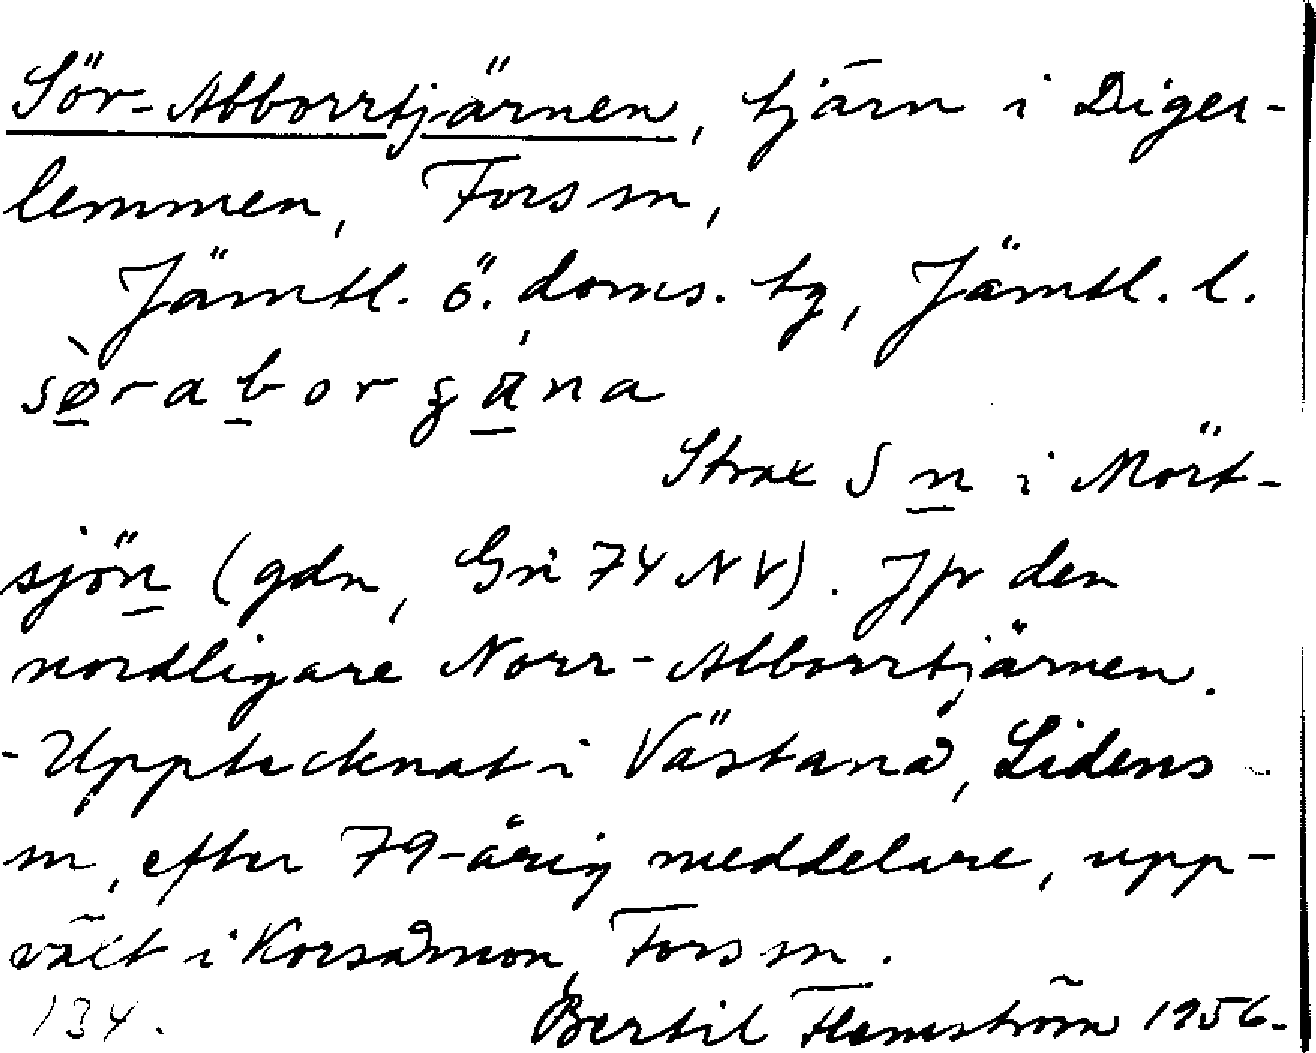 Sör-Abborrtjärnen, tjärn i Diger-
lemmen, Fors sn,
Jämtl. ö. doms. tg, Jämtl. l.
Strax S n i Mört-
sjön (gdn, Gn 74 NV). Jfr den
nordligare Norr-Abborrtjärnen.
- Upptecknat i Västanå, Lidens
sn, efter 79-årig meddelare, upp-
växt i Korsåmon, Fors sn.
134. Bertil Flemström 1956.